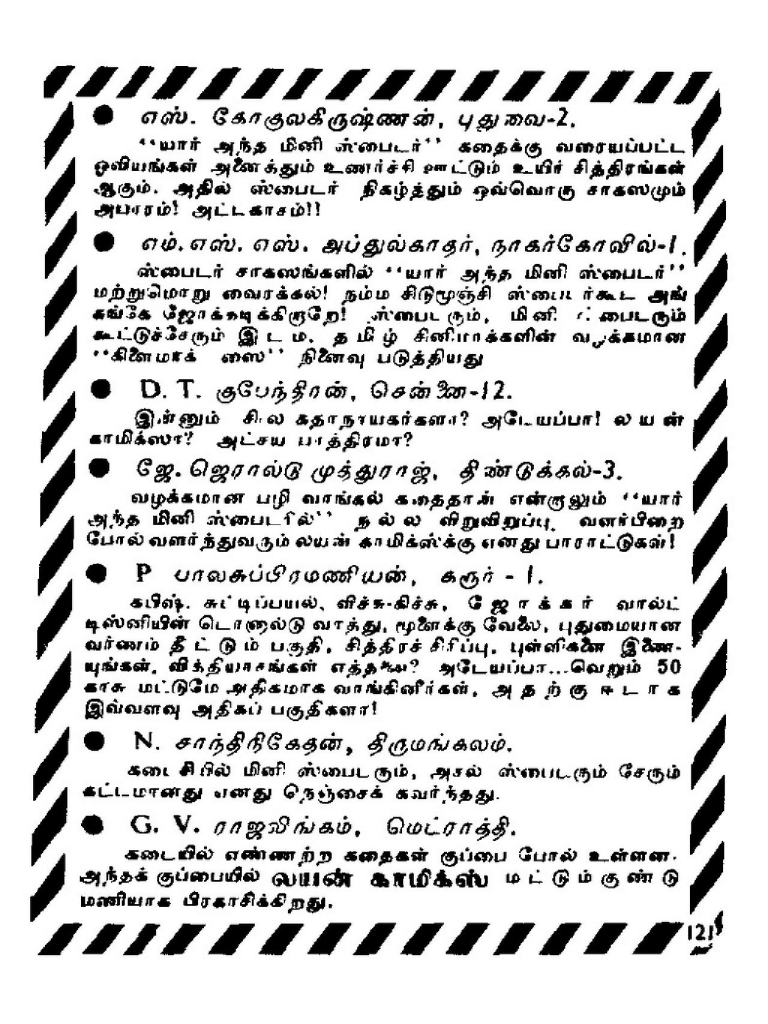 ● எஸ். கோகுலகிருஷ்ணன், புதுவை-2.
“யார் அந்த மினி ஸ்பைடர்” கதைக்கு வரையப்பட்ட
ஓவியங்கள் அனைத்தும் உணர்ச்சி ஊட்டும் உயிர் சித்திரங்கள்
ஆகும். அதில் ஸ்பைடர் நிகழ்த்தும் ஒவ்வொரு சாகஸமும்
அபாரம்! அட்டகாசம்!!
● எம். எஸ். எஸ். அப்துல்காதர், நாகர்கோவில்-1.
ஸ்பைடர் சாகஸங்களில் “யார் அந்த மினி ஸ்பைடர்”
மற்றுமொறு வைரக்கல்! நம்ம சிடுமூஞ்சி ஸ்பைடர்கூட அங்
கங்கே ஜோக்கடிக்கிறாரே! ஸ்பைடரும், மினி ஸ்பைடரும்
கூட்டுச்சேரும் இடம், தமிழ் சினிமாக்களின் வழக்கமான
“கிளைமாக்ஸை” நினைவு படுத்தியது
● D. T. குபேந்திரன், சென்னை-12.
இன்னும் சில கதாநாயகர்களா? அடேயப்பா! லயன்
காமிக்ஸா? அட்சய பாத்திரமா?
● ஜே. ஜெரால்டு முத்துராஜ், திண்டுக்கல்-3.
வழக்கமான பழி வாங்கல் கதைதான் என்றாலும் “யார்
அந்த மினி ஸ்பைடரில்” நல்ல விறுவிறுப்பு. வளர்பிறை
போல் வளர்ந்துவரும் லயன் காமிக்ஸ்க்கு எனது பாராட்டுகள்!
● P பாலசுப்பிரமணியன், கரூர் - 1.
கபிஷ். சுட்டிப்பயல், விச்சு-கிச்சு, ஜோக்கர் வால்ட்
டிஸ்னியின் டொனால்டு வாத்து, மூளைக்கு வேலை, புதுமையான
வர்ணம் தீட்டும் பகுதி, சித்திரச் சிரிப்பு, புள்ளிகளை இணை-
யுங்கள், வித்தியாசங்கள் எத்தனை? அடேயப்பா...வெறும் 50
காசு மட்டுமே அதிகமாக வாங்கினீர்கள், அதற்கு ஈடாக
இவ்வளவு அதிகப் பகுதிகளா!
● N. சாந்திநிகேதன், திருமங்கலம்.
கடைசியில் மினி ஸ்பைடரும், அசல் ஸ்பைடரும் சேரும்
கட்டமானது எனது நெஞ்சைக் கவர்ந்தது.
● G. V. ராஜலிங்கம், மெட்ராத்தி.
கடையில் எண்ணற்ற கதைகள் குப்பை போல் உள்ளன.
அந்தக் குப்பையில் லயன் காமிக்ஸ் மட்டும் குண்டு
மணியாக பிரகாசிக்கிறது.
121